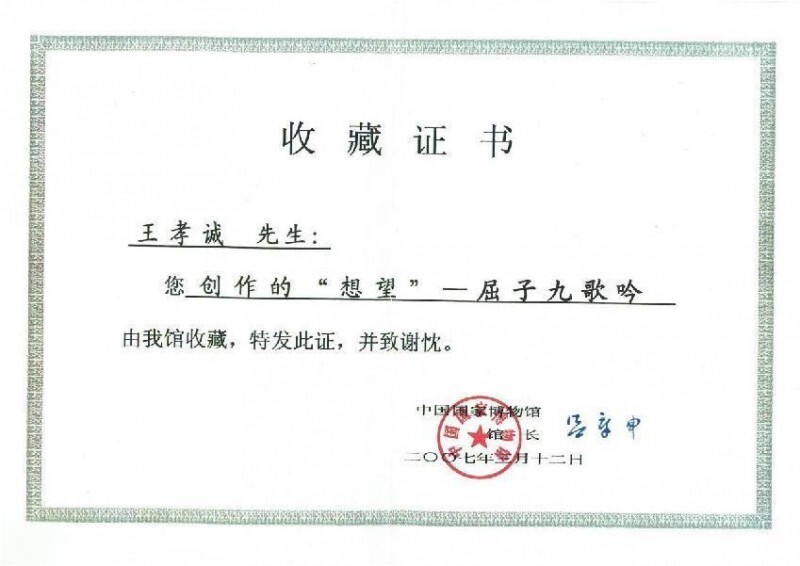 收藏证书
王孝诚 先生：
您创作的“想望”—屈子九歌吟
由我馆收藏，特发此证，并致谢忱。
中国国家博物馆
馆长 吕章申
二〇〇七年三月十二日
中国国家博物馆